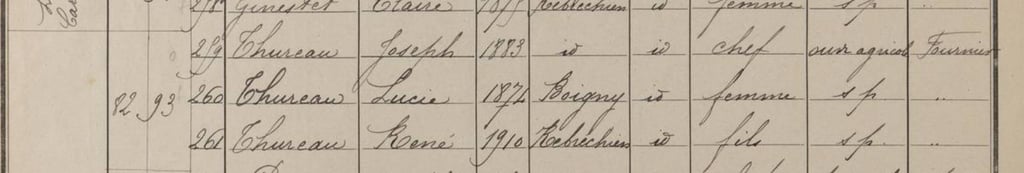 258 Ginestet Claire 1877 Rebréchien id femme s p ..
259 Thureau Joseph 1883 id id chef ouvr agricol Fournier
82 93 260 Thureau Lucie 1874 Boigny id femme s p ..
261 Thureau René 1910 Rebréchien id fils s p ..